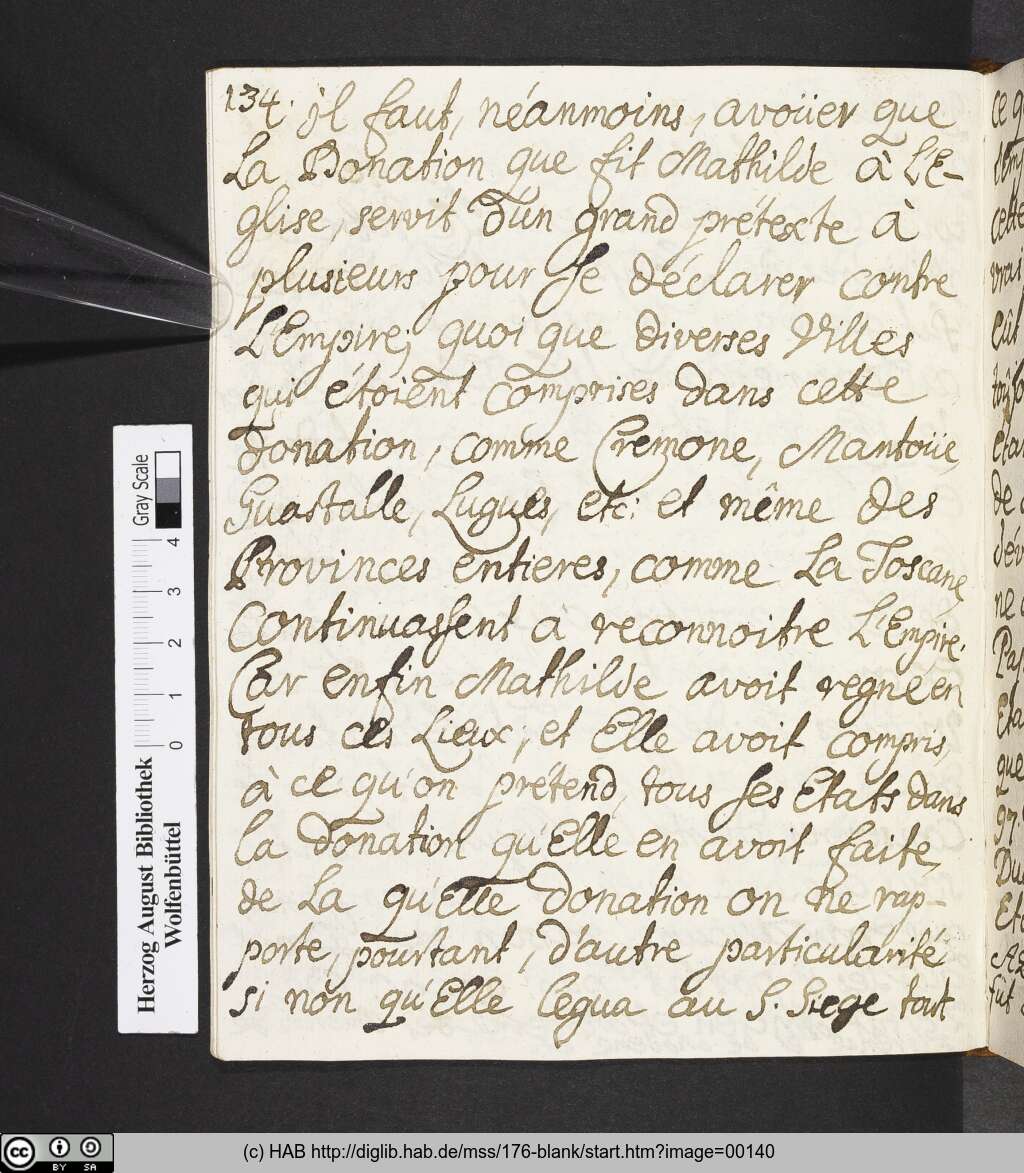 134. il faut, néanmoins, avoüer que
La Donation que fit Mathilde à L'E-
glise, servit d'un grand prétexte à
plusieurs pour se déclarer contre
L'Empire; quoi que diverses Villes
qui étoient comprises dans cette
donation, comme Cremone, Mantoüe,
Guastalle, Lugues, etc: et même des
Provinces entieres, comme La Toscane,
Continuassent à reconnoitre L'Empire.
Car enfin Mathilde avoit regné en
tous ces Lieux; et Elle avoit compris,
à ce qu'on prétend, tous ses Etats dans
la donation qu'Elle en avoit faite,
de La qu'Elle donation on ne rap-
porte, pourtant, d'autre particularité
si non qu'Elle legua au S. Siege tout
ce
cette
eût
de
ne
que
Herzog August Bibliothek
Wolfenbüttel
Gray Scale
0 1 2 3 4
CC BY SA
(c) HAB http://diglib.hab.de/mss/176-blank/start.htm?image=00140